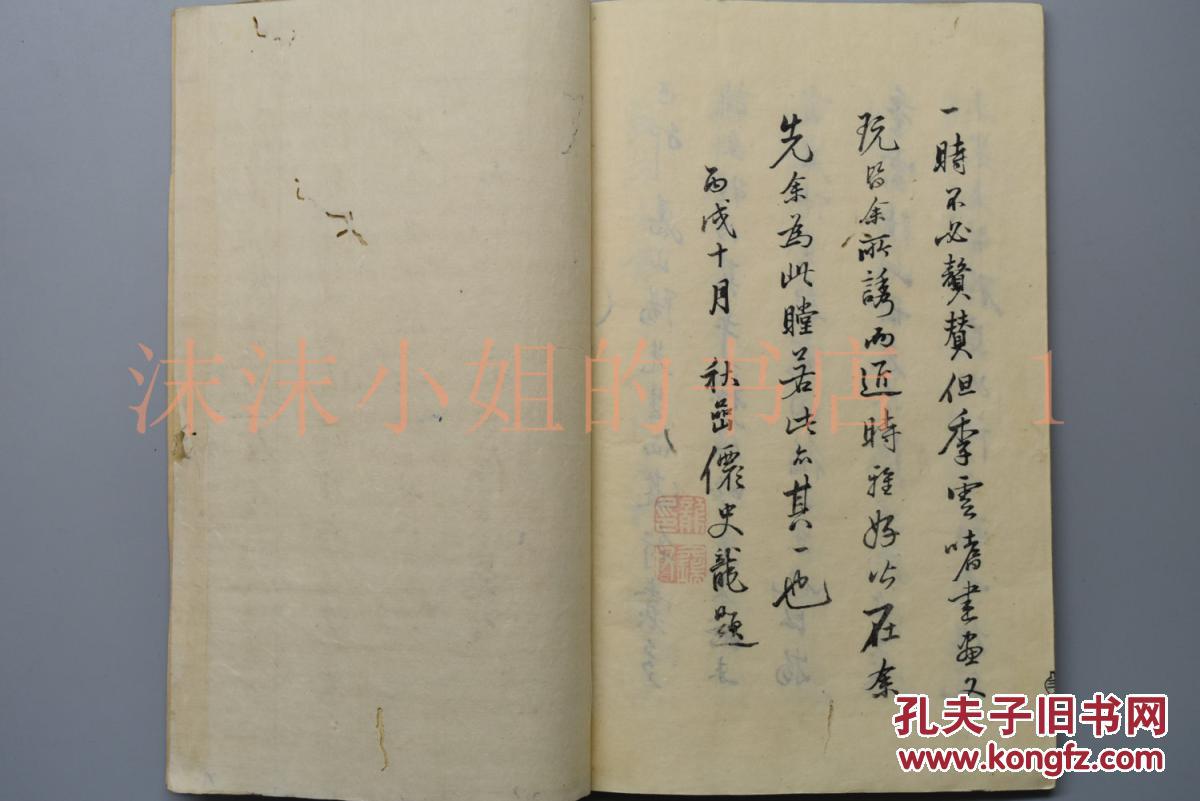 一時不必贅賛但季雲嗜書画文
玩皆余所誘而近時雅好必在余
先余為此瞠若此亦其一也
丙戌十月 秋嵒僊史龍題
沫沫小姐的书店 1
孔夫子旧书网
www.kongfz.com